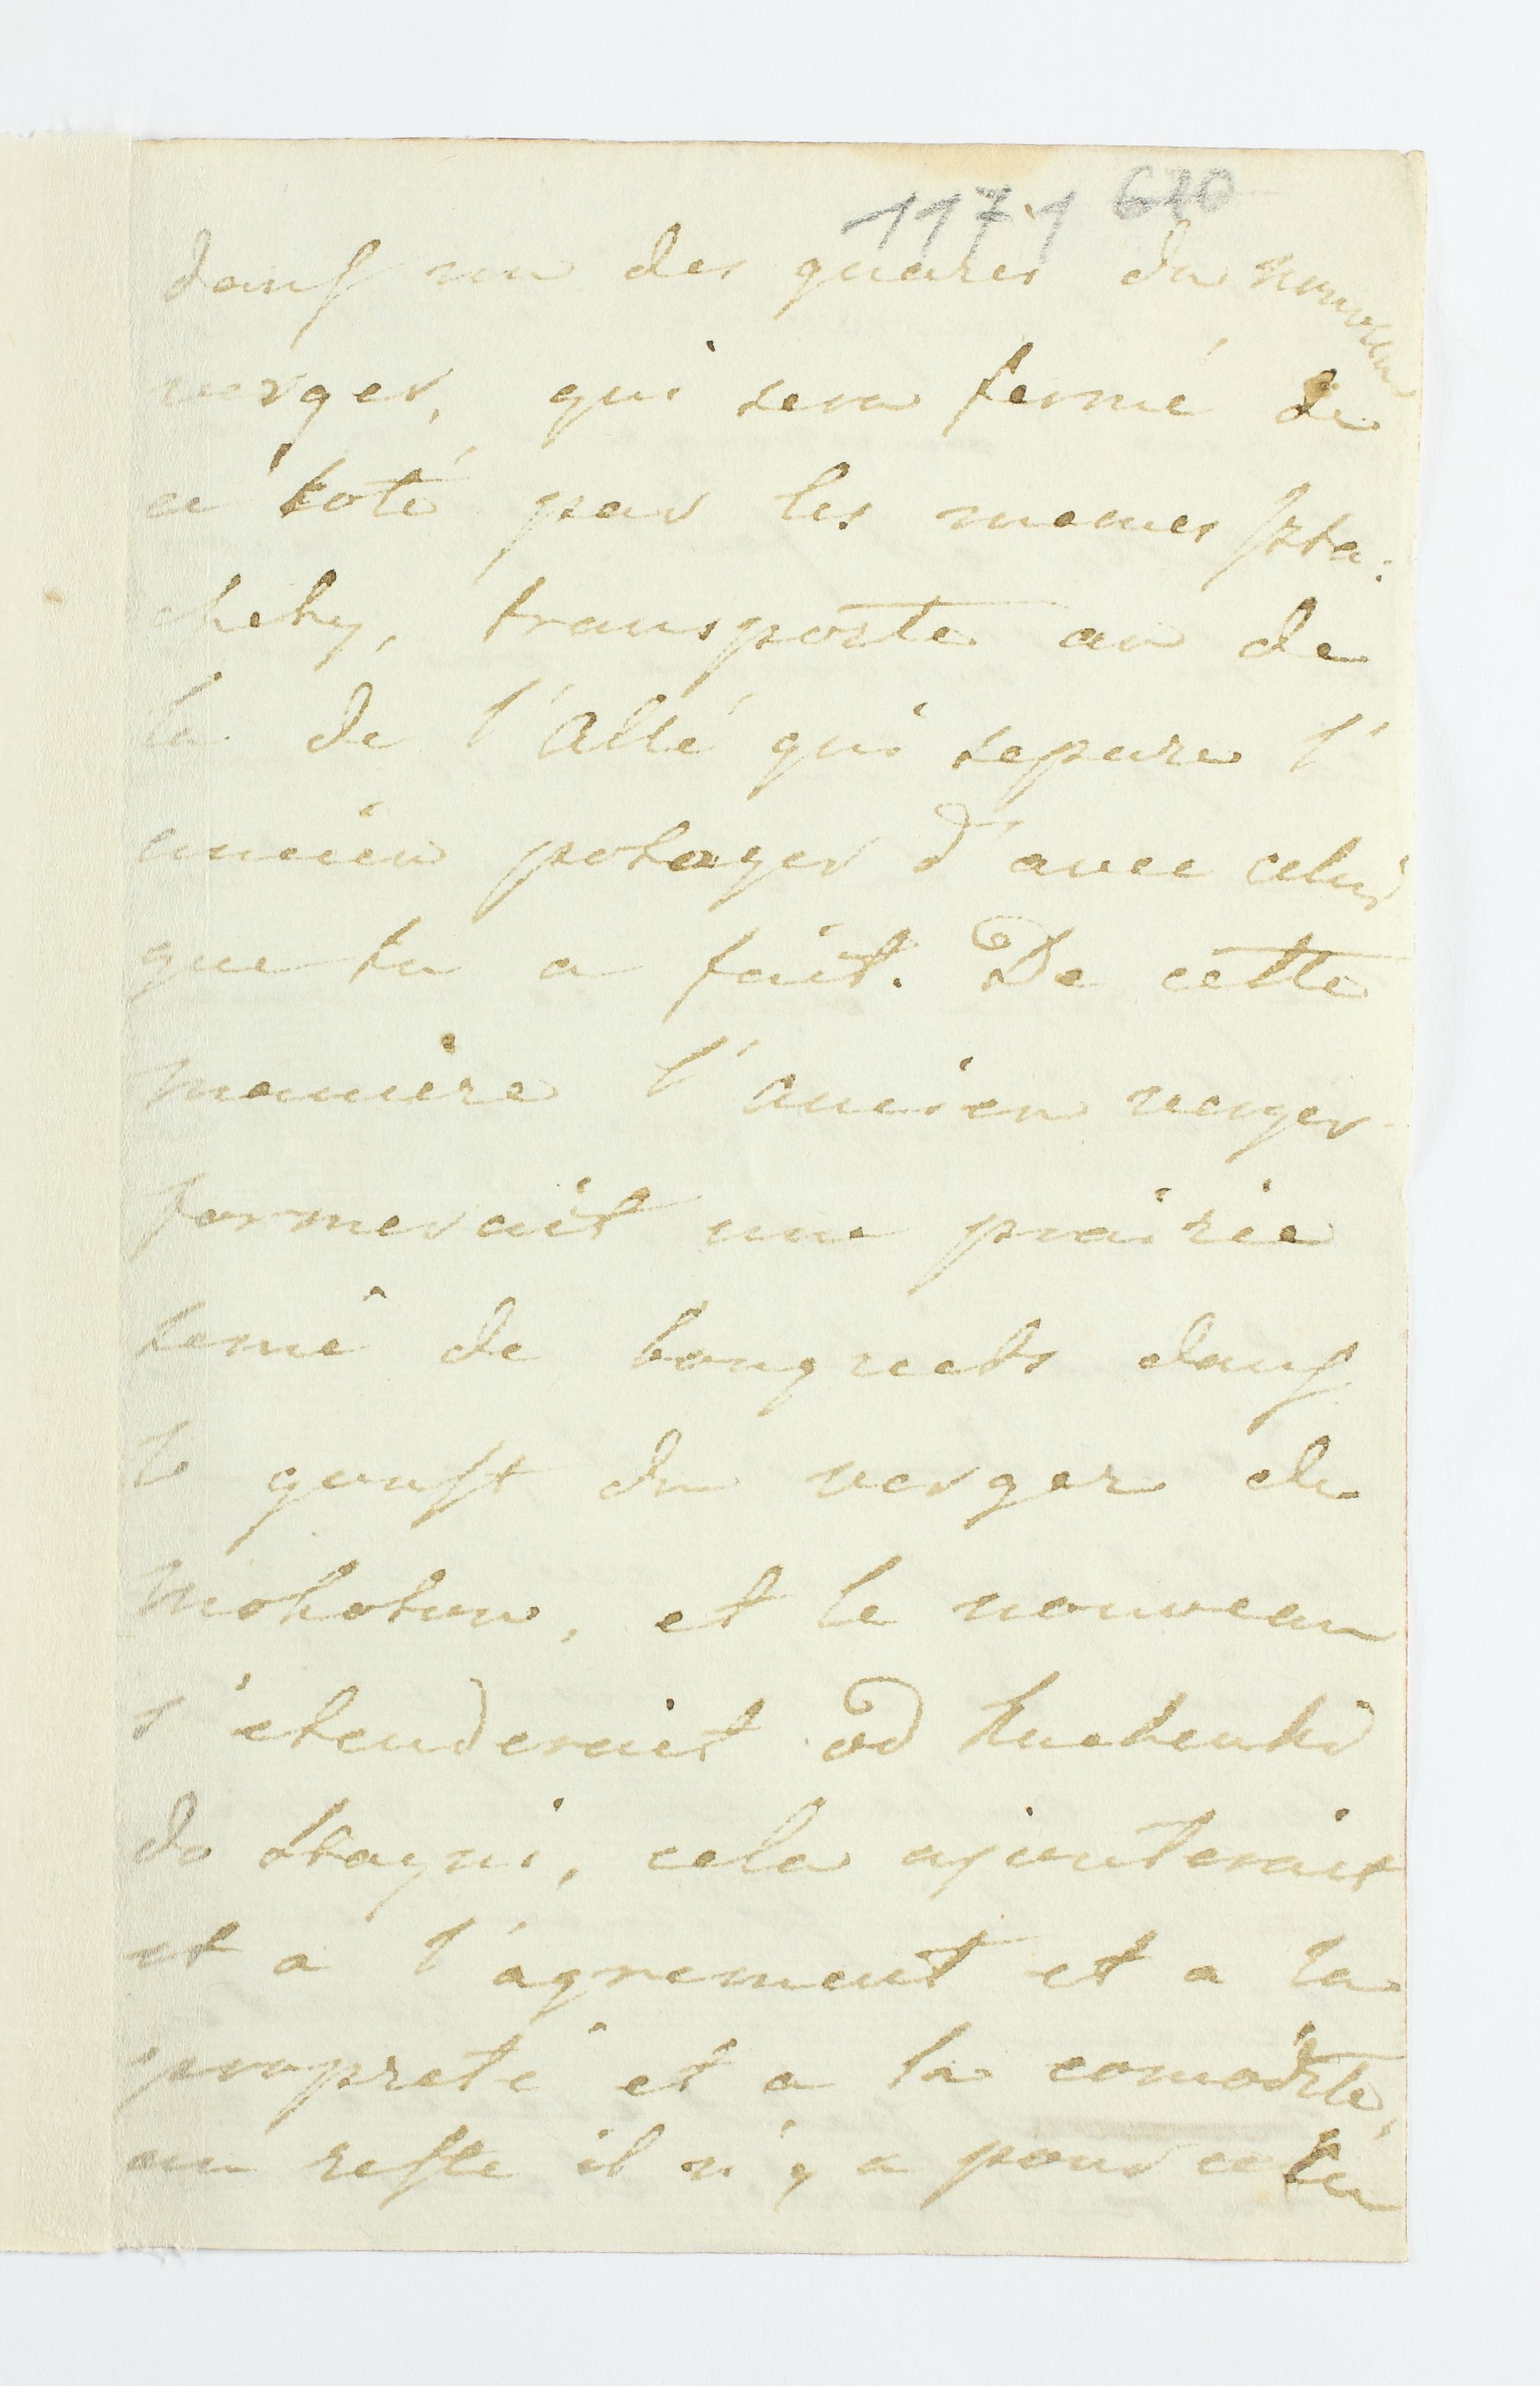 1171 620
dans un des quarés du nouveau
verger, qui sera fermé de
ce koté par les memes szta:
chety, transporté au de
la de l'Allé qui separe l'
ancien potager d'avec celui
que tu a fait. De cette
maniere l'ancien verger
formerait une prairie
semé de bougeets dans
le goust du verger de
Mokotow, et le nouveau
s'etenderait od Kuchenki
do stayni, cela ajouterait
et a l'agrement et a la
propreté et a la comodité,
au reste il n'y a pour cela